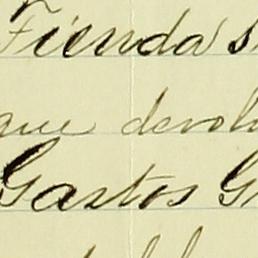 Tienda s
que devol
Gastos G